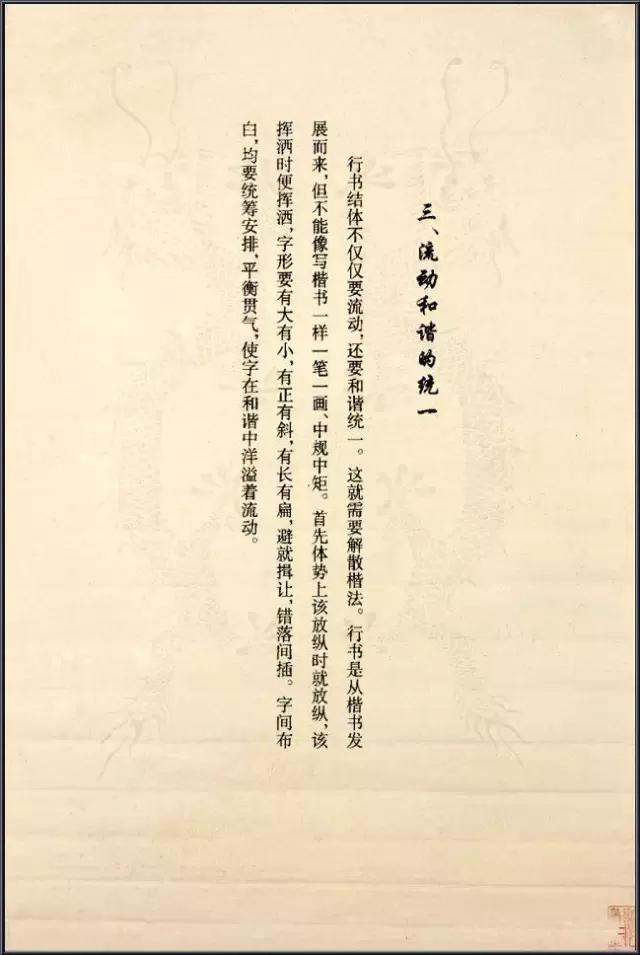 三、流动和谐的统一
行书结体不仅仅要流动，还要和谐统一。这就需要解散楷法。行书是从楷书发
展而来，但不能像写楷书一样一笔一画、中规中矩。首先体势上该放纵时就放纵，该
挥洒时便挥洒，字形要有大有小，有正有斜，有长有扁，避就揖让，错落间插。字间布
白，均要统筹安排，平衡贯气，使字在和谐中洋溢着流动。